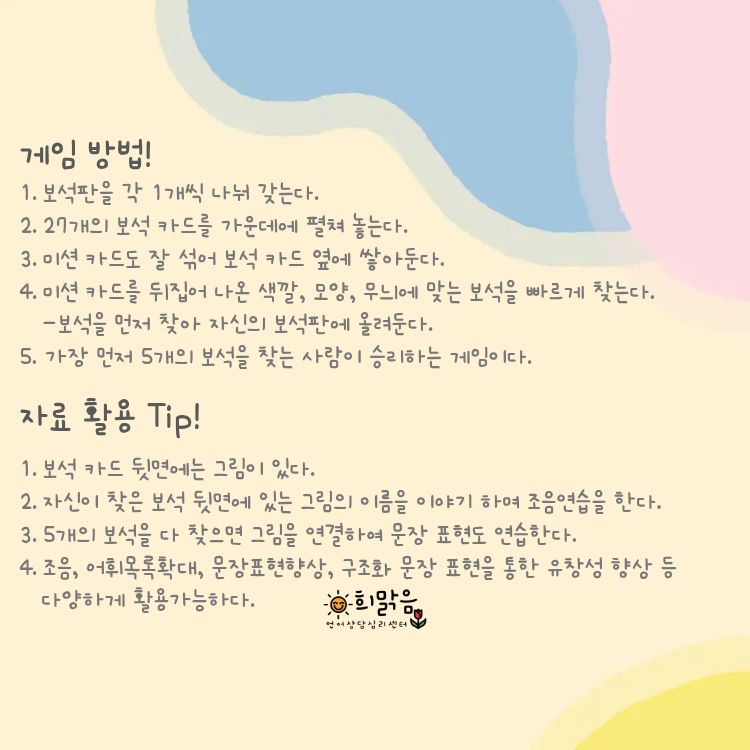 게임 방법!
1. 보석판을 각 1개씩 나눠 갖는다.
2. 27개의 보석 카드를 가운데에 펼쳐 놓는다.
3. 미션 카드도 잘 섞어 보석 카드 옆에 쌓아둔다.
4. 미션 카드를 뒤집어 나온 색깔, 모양, 무늬에 맞는 보석을 빠르게 찾는다.
-보석을 먼저 찾아 자신의 보석판에 올려둔다.
5. 가장 먼저 5개의 보석을 찾는 사람이 승리하는 게임이다.
자료 활용 Tip!
1. 보석 카드 뒷면에는 그림이 있다.
2. 자신이 찾은 보석 뒷면에 있는 그림의 이름을 이야기 하며 조음연습을 한다.
3. 5개의 보석을 다 찾으면 그림을 연결하여 문장 표현도 연습한다.
4. 조음, 어휘목록확대, 문장표현향상, 구조화 문장 표현을 통한 유창성 향상 등
다양하게 활용가능하다.
희맑음
언어상담심리센터